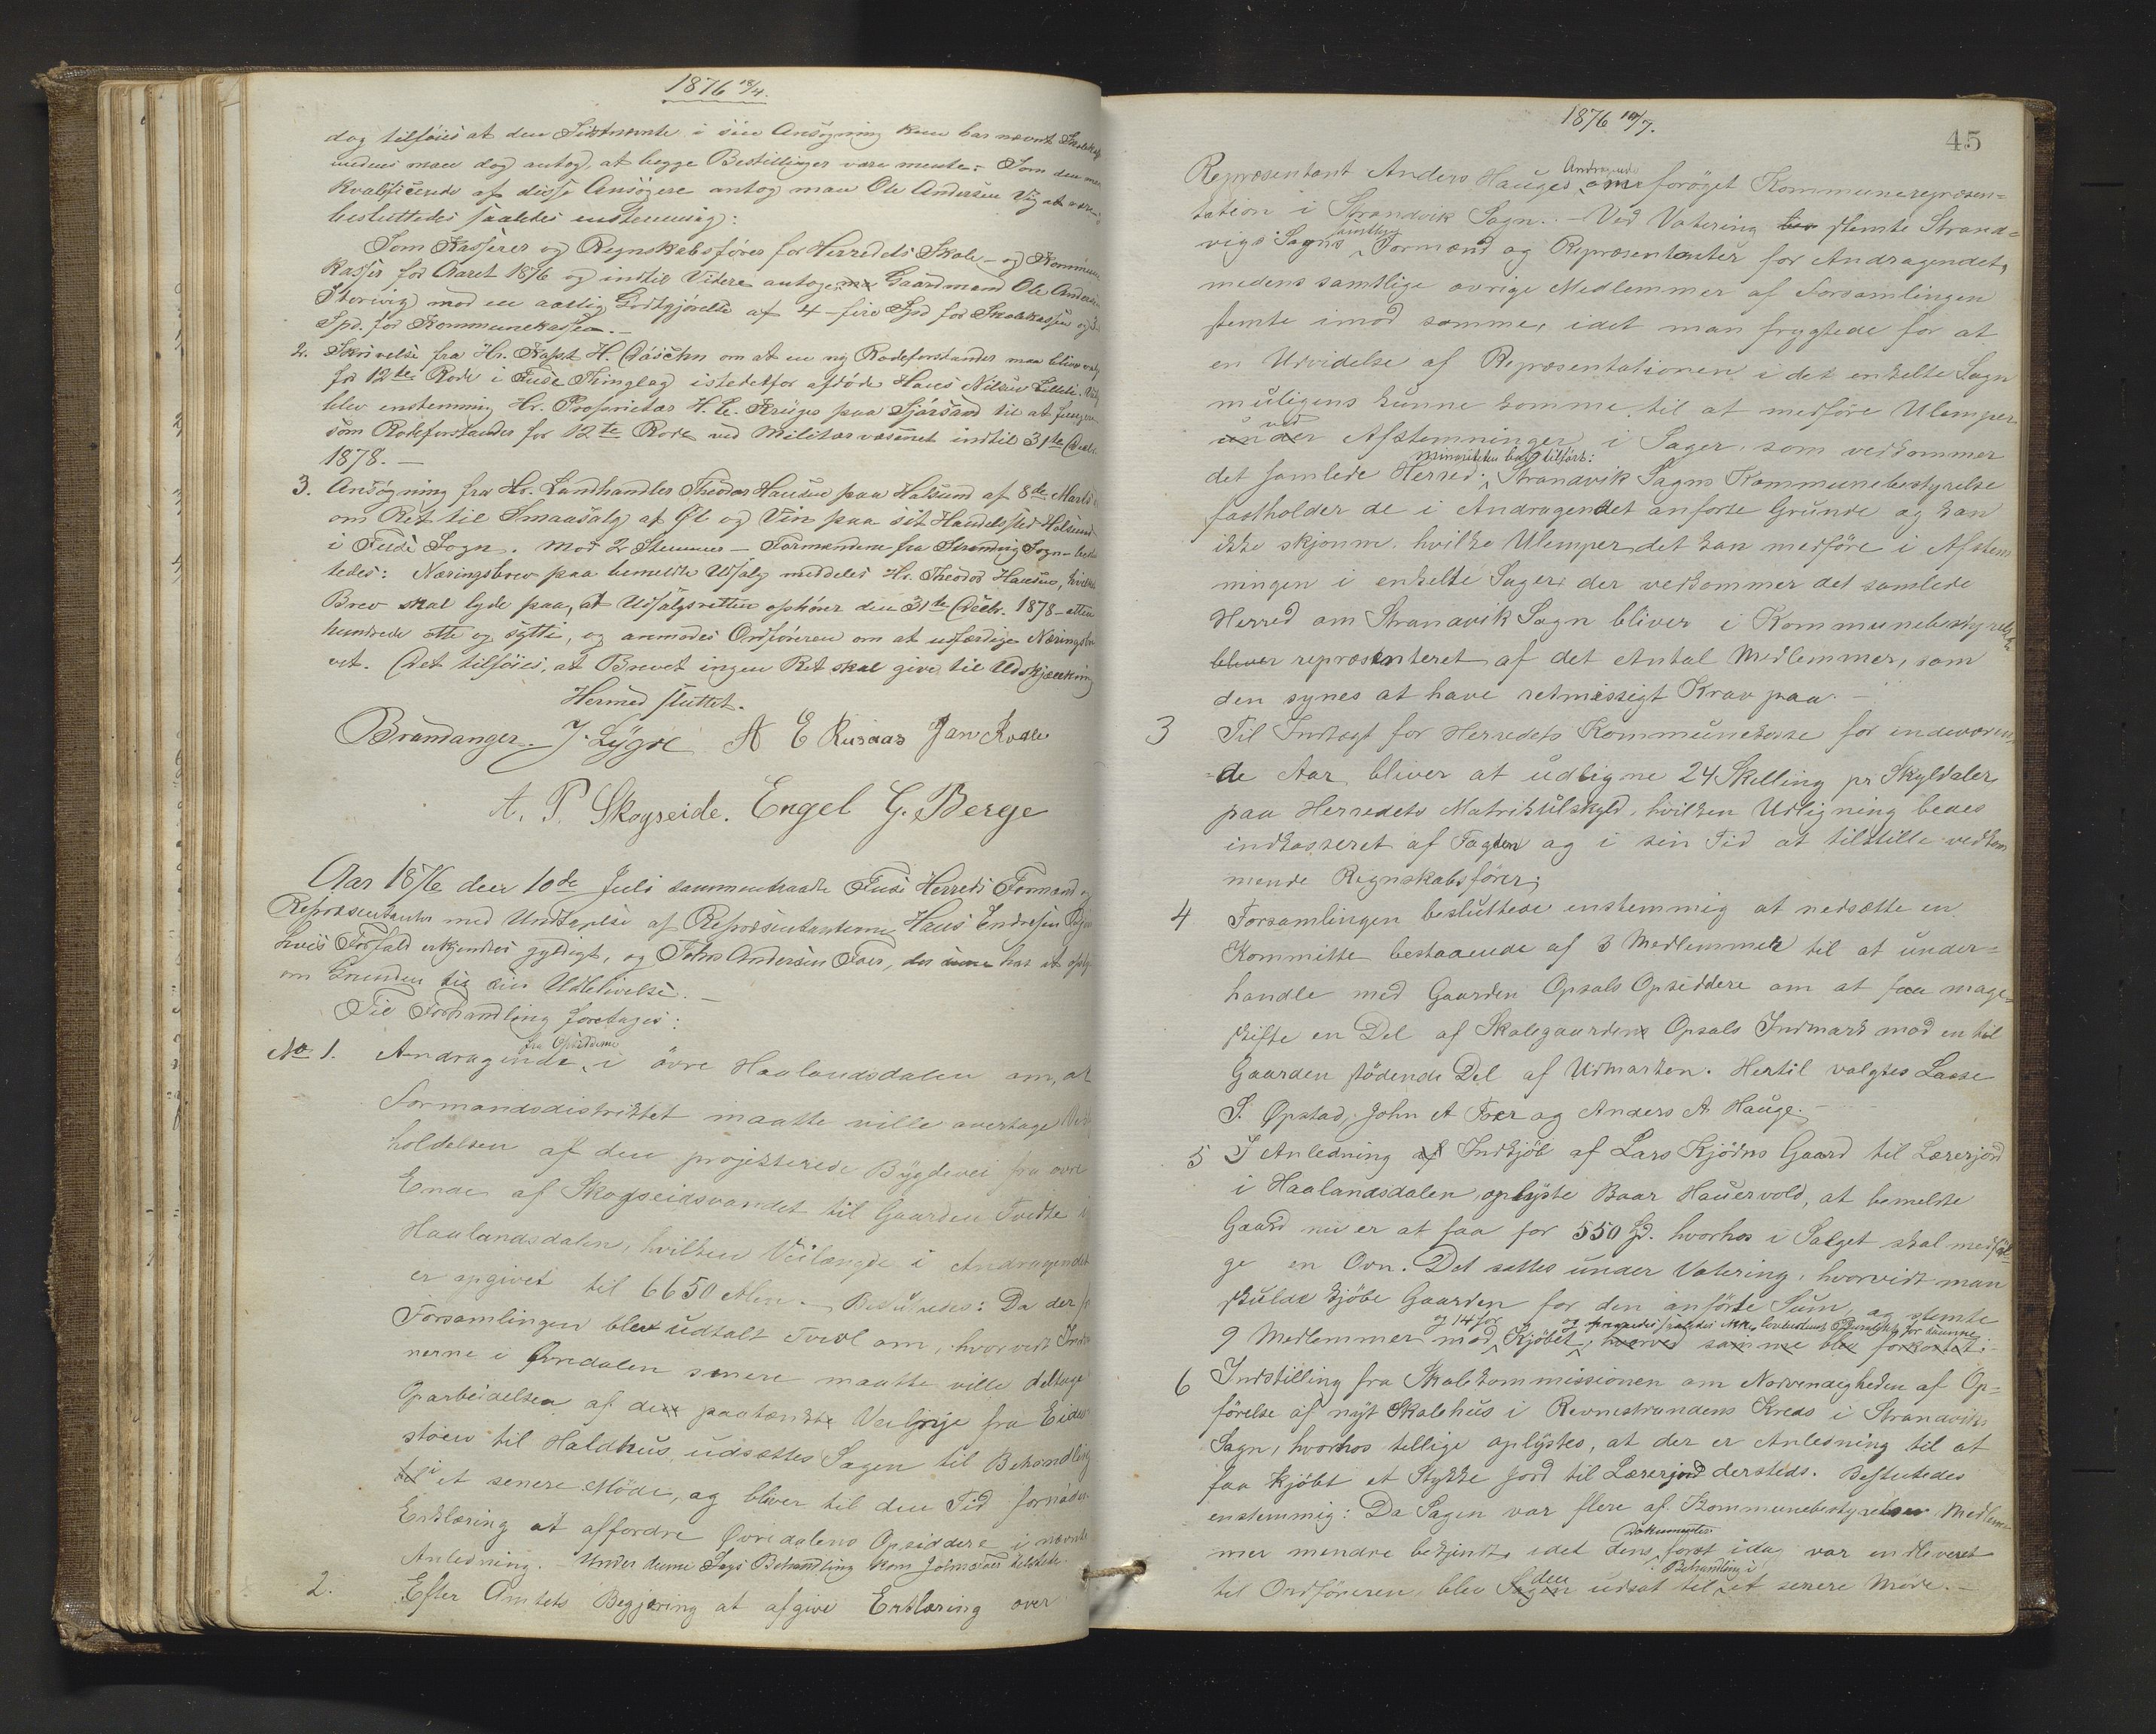 1876 18/4.
dog tilføies at den Sidstnævnte i sin Ansøgning kun har nævnt
medens man dog antog, at begge Bestillinger vare mente. Som den
kvalificerede af disse Ansøgere antog man Ole Andersen Vig at være
besluttedes saaledes enstemmig:
Som Kasserer og Regnskabsfører for Herredets Skole- og Kommune
kasser for Aaret 1876 og indtil Videre antoges Gaardmand Ole Anders
Storivig mod en aarlig Godtgjørelse af 4 - fire Spd for Skolekassen og
Spd. for Kommunekassen.-
2. Skrivelse fra Hr. Kapt. H. om at en ny Rodeforstander maa blive valg
for 12te Rode i Fuse Thinglag istedetfor afdøde Hans Nilsen
blev enstemmig Hr. Proprietær H. C. Krüger paa Sjørsand til at fungere
som Rodeforstander for 12te Rode ved Militærvæsenet indtil 31te Decbr.
1878.-
3. Ansøgning fra Hr. Landhandler Theodor Hansen paa Holsund af 8de Marts
om Ret til Smaasalg af Øl og Vin paa sit Handelssted Holsund
i Fuse Sogn. Mod 2 Stemmer - Formændene fra Strandvig Sogn - beslut
tedes: Næringsbrev paa bemeldte Udsalg meddeles Hr. Theodor Hansen, hvilket
Brev skal lyde paa, at Udsalgsretten ophører den 31te Decbr. 1878 - atten
hundrede otte og sytti, og anmodes Ordføreren om at udfærdige Næringsbre
vet. Det tilføies, at Brevet ingen Ret skal give til Udskjænkning
Hermed sluttet.
Brandanger. J. Lygre A E Risaas Jan Kvale
A. P. Skogseide. Engel G. Berge
Aar 1876 den 10de Juli sammentraadte Fuse Herreds Formænd og
Repræsentanter med Undtagelse af Repræsentanterne Hans Endresen
hvis Forfald erkjendtes gyldigt, og Johs Andersen Foer, der har at oplyse
om Grunden til sin Udeblivelse.-
Til Forhandling foretages:
No 1. Andragende fra Opsidderne i øvre Haalandsdalen om, at
Formandsdistriktet maatte ville overtage Ved
holdelsen af den projekterede Bygdevei fra øvre
Ende af Skogseidsvandet til Gaarden Tvedte i
Haalandsdalen, hvilken Veilængde i Andragendet
er opgivet til 6650 Alen.- Besluttedes: Da der i
Forsamlingen blev udtalt Tvivl om, hvorvidt
nerne i Øvredalen senere maatte ville deltage
Oparbeidelsen af den paatænkte Veilinje fra Eide
støen til Haldhus, udsættes Sagen til Behandling
i et senere Møde, og bliver til den Tid fornøden
Erklæring at affordre Øvredalens Opsiddere i nævnte
Anledning.- Under denne Sags Behandling kom John Foer tilstede.
2. Efter Amtets Begjæring at afgive Erklæring over
1876 10/7.
45
Repræsentant Anders Hauges Andragende om forøget Kommunerepræsen=
tation i Strandvik Sogn.- Ved Votering stemte Strand=
vigs Sogns samtlige Formænd og Repræsentanter for Andragendet,
medens samtlige øvrige Medlemmer af Forsamlingen
stemte imod samme, idet man frygtede for at
en Udvidelse af Repræsentationen i det enkelte Sogn
muligens kunne komme til at medføre Ulemper
ved Afstemninger i Sager, som vedkommer
det samlede Herred. Minoriteten bad tilført: Strandvik Sogns Kommunebestyrelse
fastholder de i Andragendet anførte Grunde og kan
ikke skjønne, hvilke Ulemper det kan medføre i Afstem
ningen i enkelte Sager, der vedkommer det samlede
Herred om Strandvik Sogn bliver i Kommunebestyrelsen
bliver repræsenteret af det Antal Medlemmer, som
den synes at have retmæssigt Krav paa.-
3 Til Indtægt for Herredets Kommunekasse for indeværen
=de Aar bliver at udligne 24 Skilling pr Skylddaler
paa Herredets Matrikulskyld, hvilken Udligning bedes
indkasseret af Fogden og i sin Tid at tilstille vedkom
mende Regnskabsfører;
4 Forsamlingen besluttede enstemmig at nedsætte en
Kommitte bestaaende af 3 Medlemmer til at under=
handle med Gaarden Opsals Opsiddere om at faa mage=
skifte en Del af Skolegaarden Opsals Indmark mod en til
Gaarden stødende Del af Udmarken. Hertil valgtes Lasse
S. Opstad, John A Foer og Anders A Hauge.-
5 I Anledning af Indkjøb af Lars Kjødns Gaard til Lærerjord
i Haalandsdalen, oplyste Baar Hauervold, at bemeldte
Gaard nu er at faa for 550 Spd. hvorhos i Salget skal medføl=
ge en Ovn. Det sattes under Votering, hvorvidt man
skulde kjøbe Gaarden for den anførte Sum, og stemte
9 Medlemmer mod og 14 for Kjøbet, hvorved samme blev forkastet.
6 Indstilling fra Skolekommissionen om Nødvendigheden af Op=
førelse af nyt Skolehus i Revnestrandens Kreds i Strandviks
Sogn, hvorhos tillige oplystes, at der er Anledning til at
faa kjøbt et Stykke Jord til Lærerjord dersteds. Besluttedes
enstemmig: Da Sagen var flere af Kommunebestyrelsens Medlem
mer mindre bekjendt, idet dens Dokumenter først idag var indleveret
til Ordføreren, blev den udsat til Behandling i et senere Møde.-